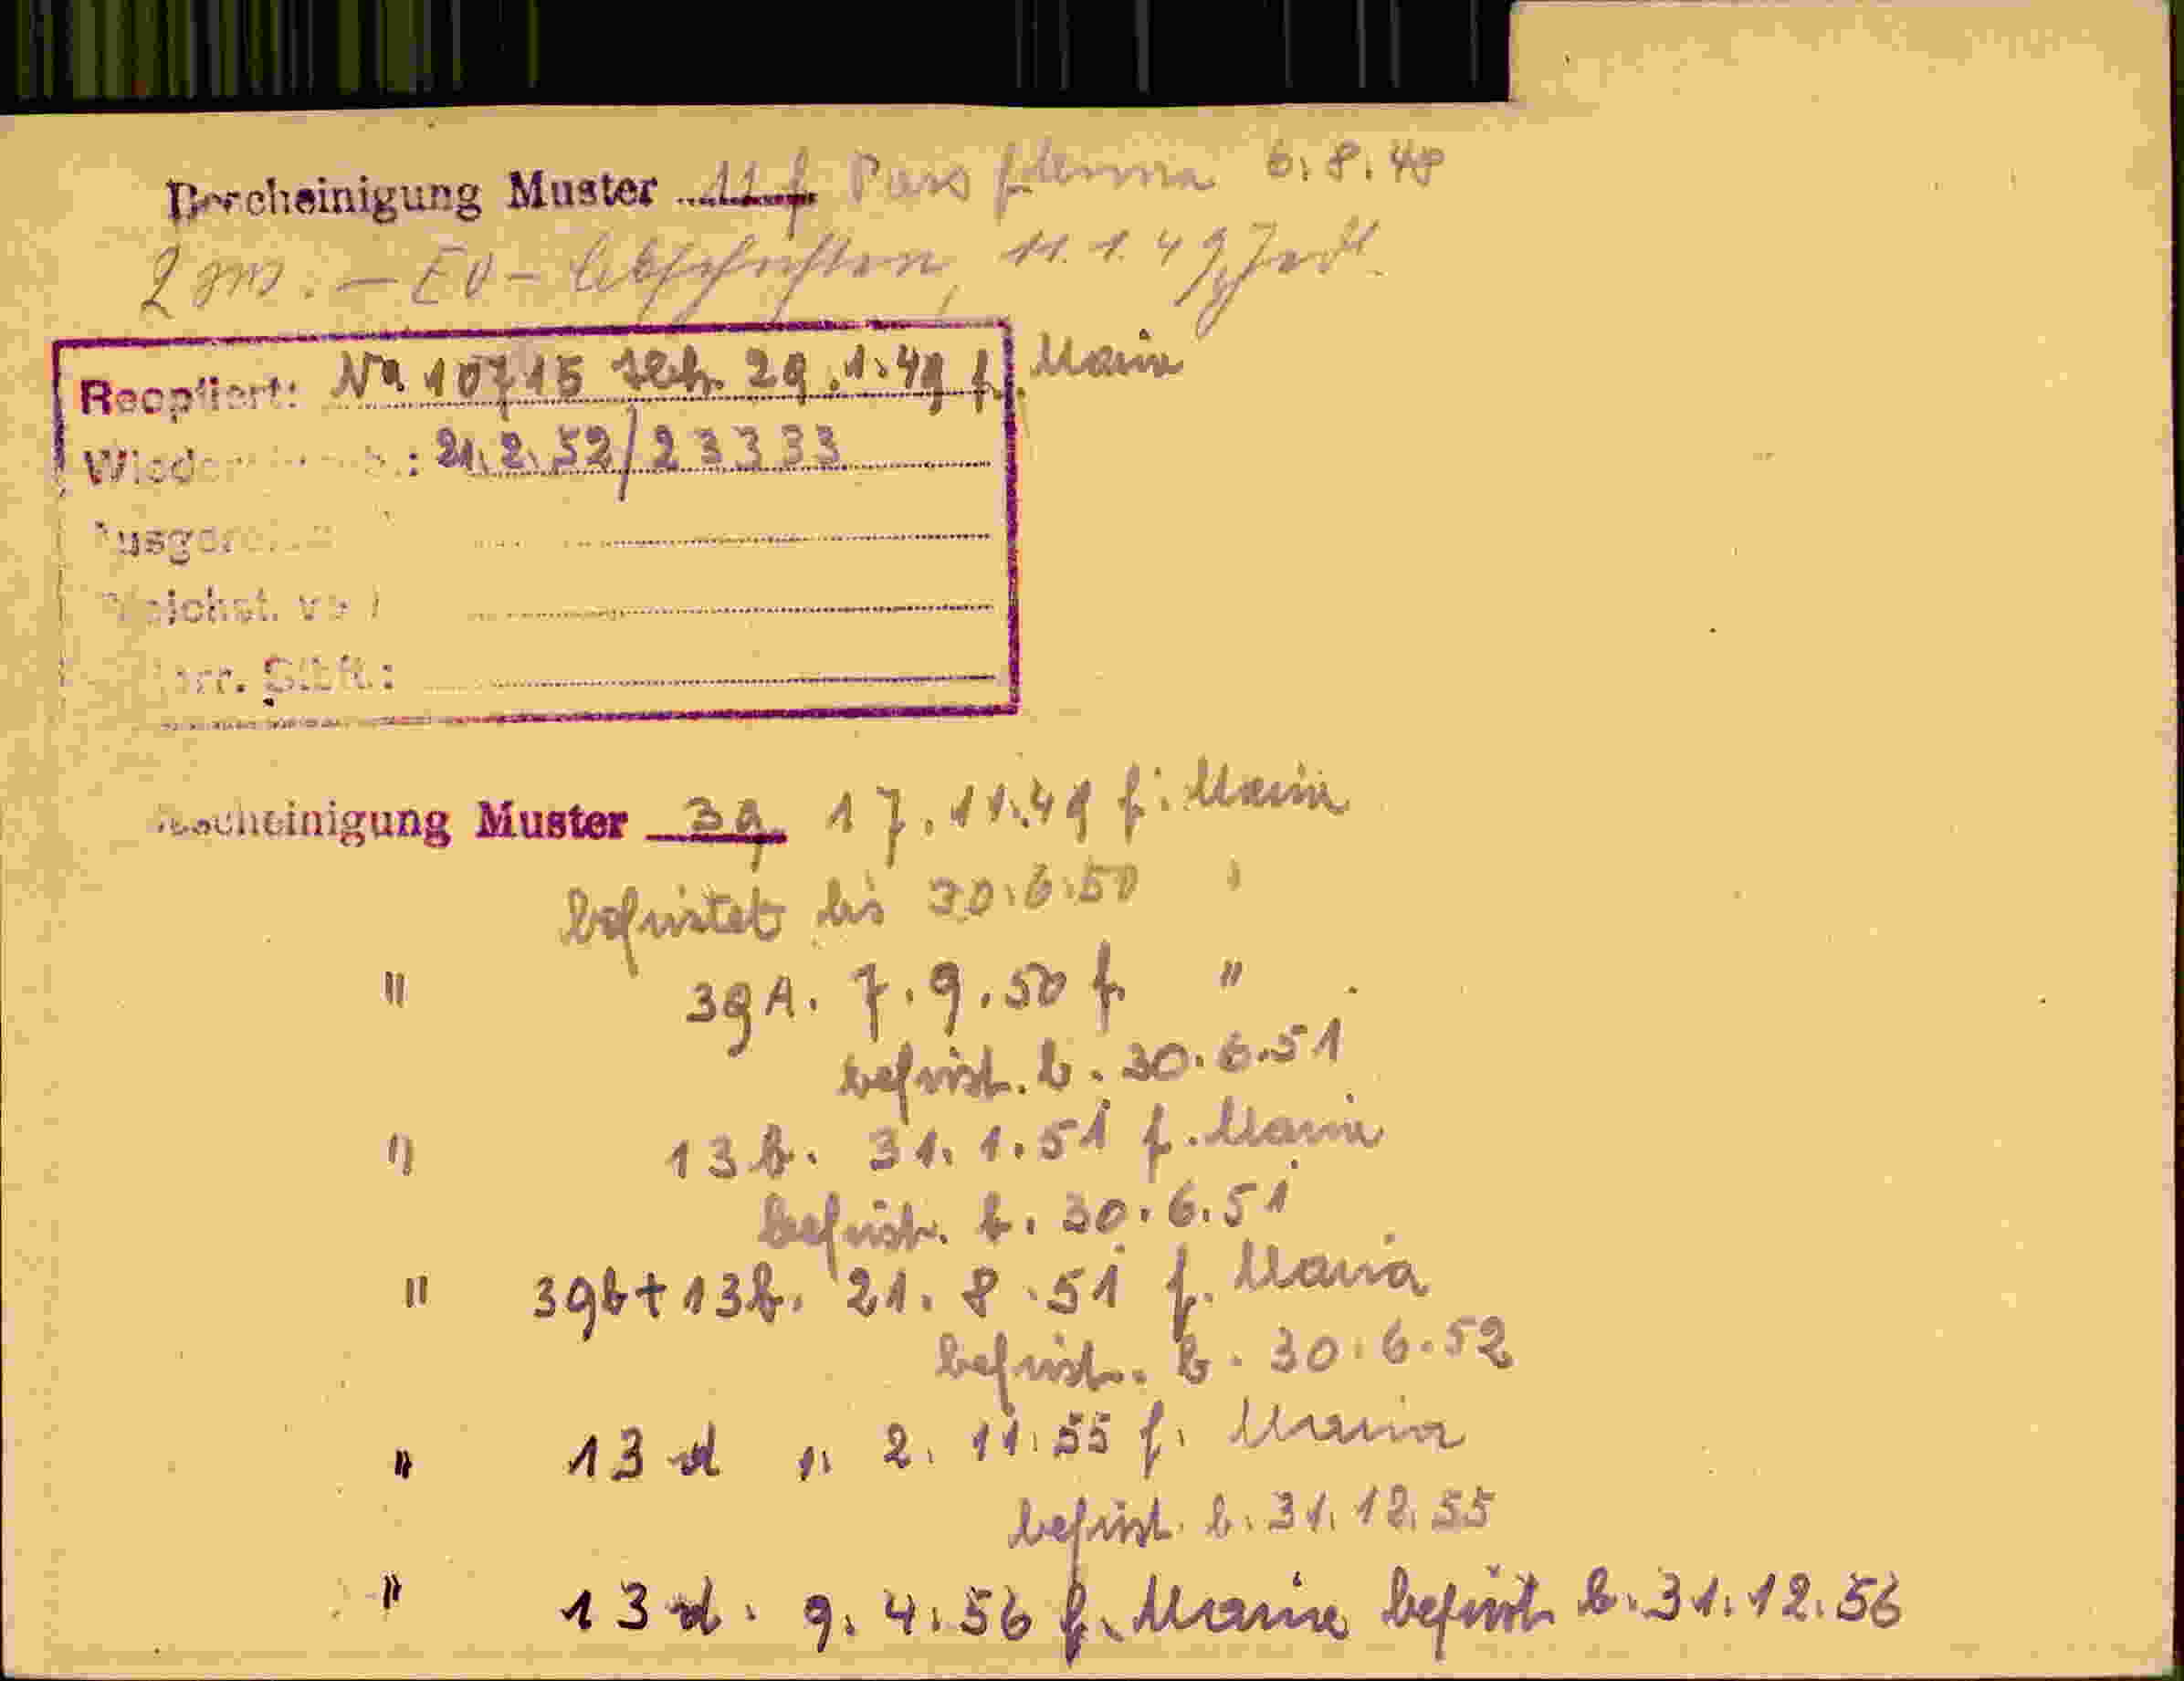 Bescheinigung Muster 11 f Pass f. Emma 6.8.48
2 – EV – Abschriften, 11.1.49
Reoptiert: No 10715 29.1.49 f. Maria
21.2.52/23333
Bescheinigung Muster 3g 17.11.49 f. Maria
befristet bis 30.6.50 "
" 3gA. 7.9.50 f. "
befrist. b. 30.6.51
" 13b. 31.1.51 f. Maria
befrist. b. 30.6.51
" 3gb+13b. 21.8.51 f. Maria
befrist. b. 30.6.52
" 13 d " 2.11.55 f. Maria
befrist. b. 31.12.55
" 13 d. 9.4.56 f. Maria befrist b. 31.12.56